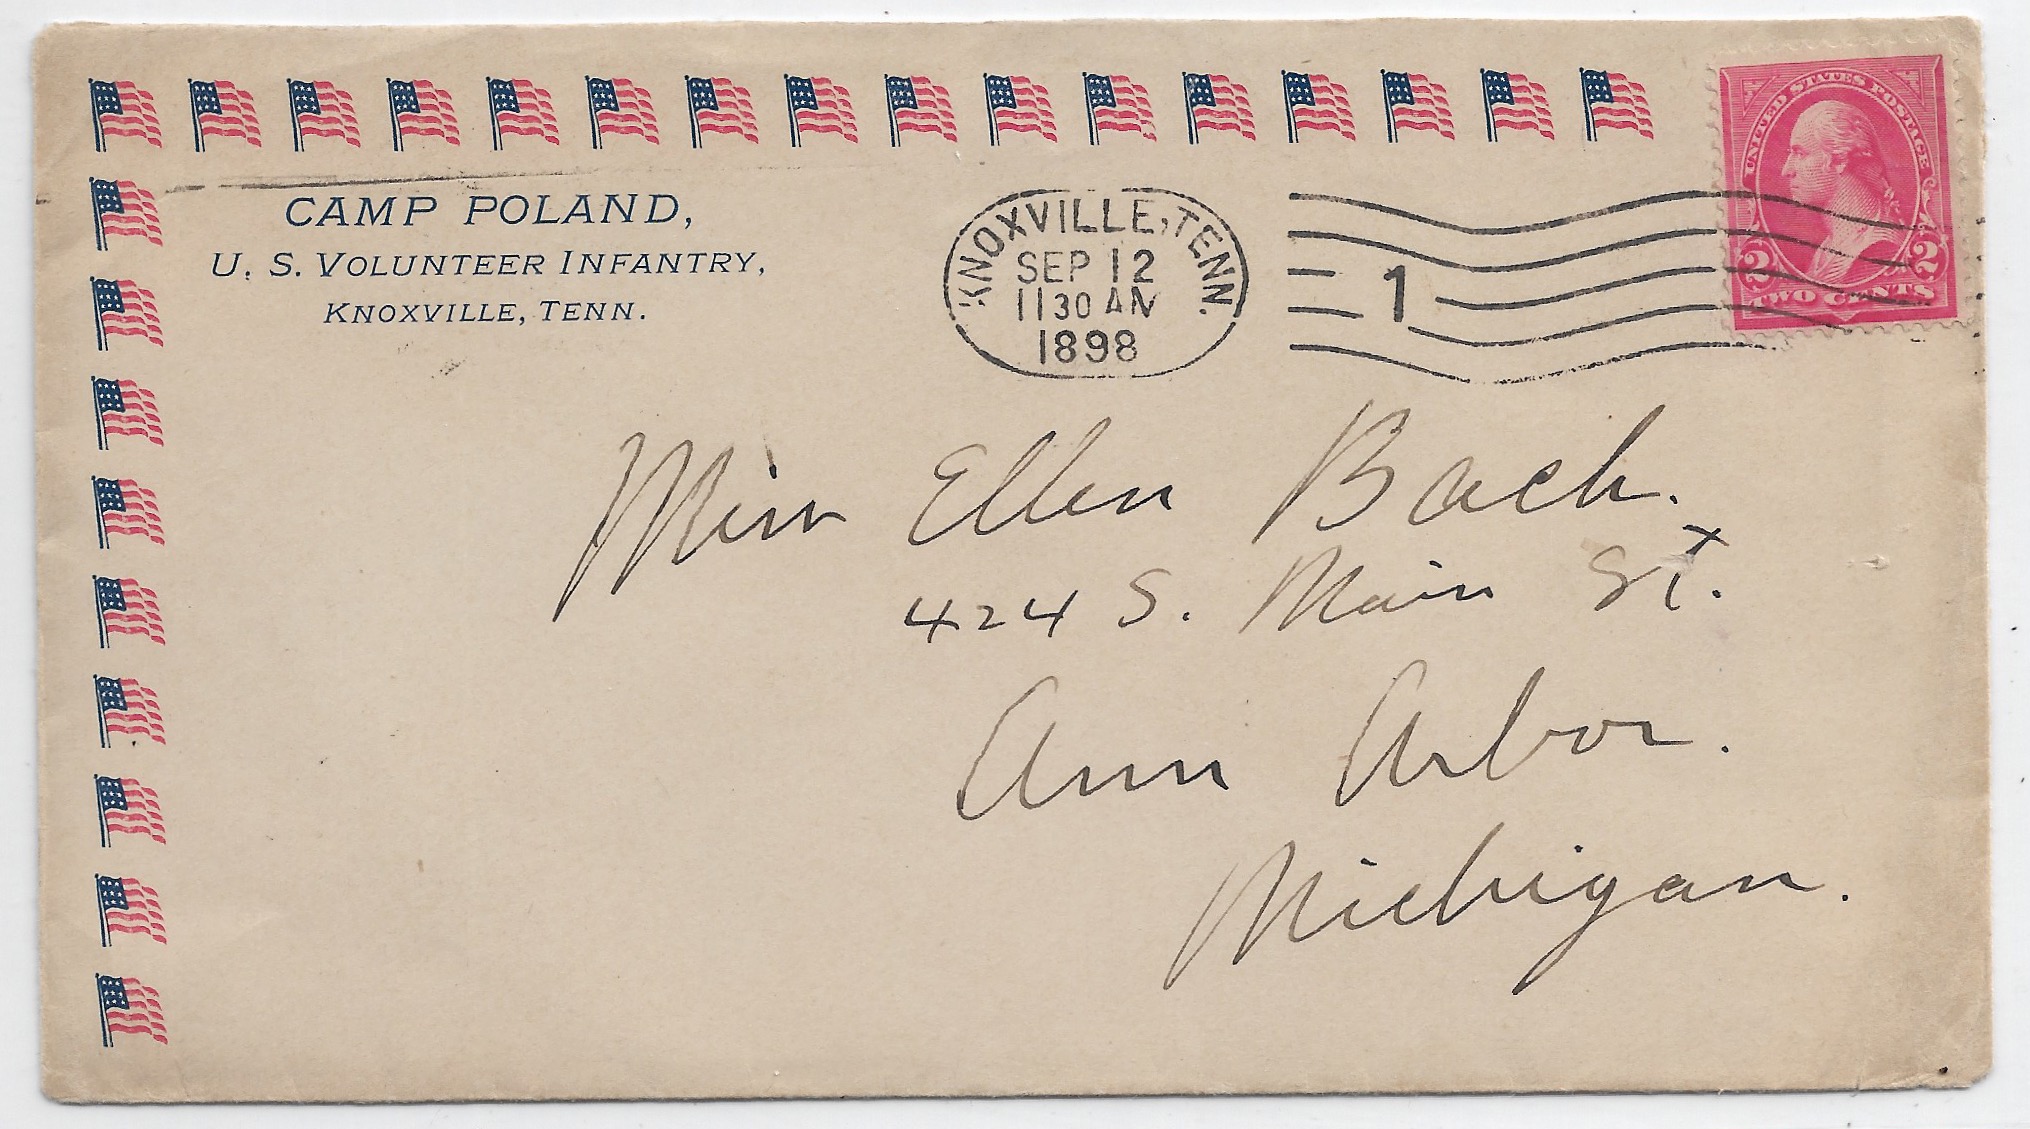 CAMP POLAND,
U. S. VOLUNTEER INFANTRY,
KNOXVILLE, TENN.
KNOXVILLE, TENN.
SEP 12
11 30 AM
1898
1
UNITED STATES POSTAGE
2 2
TWO CENTS
Miss Ellen Bach.
424 S. Main St.
Ann Arbor.
Michigan.